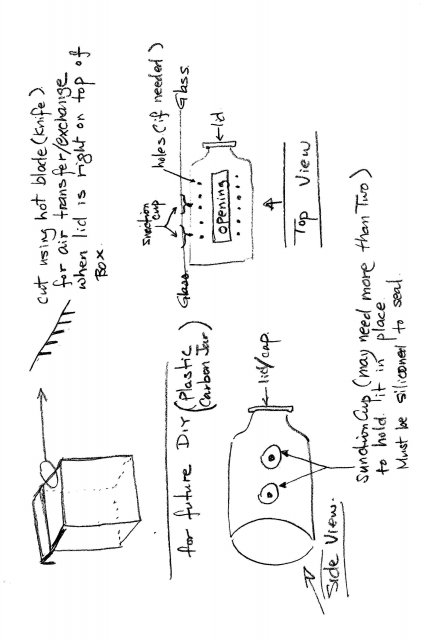 cut using hot blade (Knife)
for air transfer/exchange
when lid is right on top of
Box.
for future DIY (Plastic
Carbon Jar)
Glass
Suction
cup
holes (if needed)
Glass
opening
lid
Top View
lid/cap.
Side View.
Sunction Cup (may need more than Two)
to hold it in place.
Must be siliconed to seal.